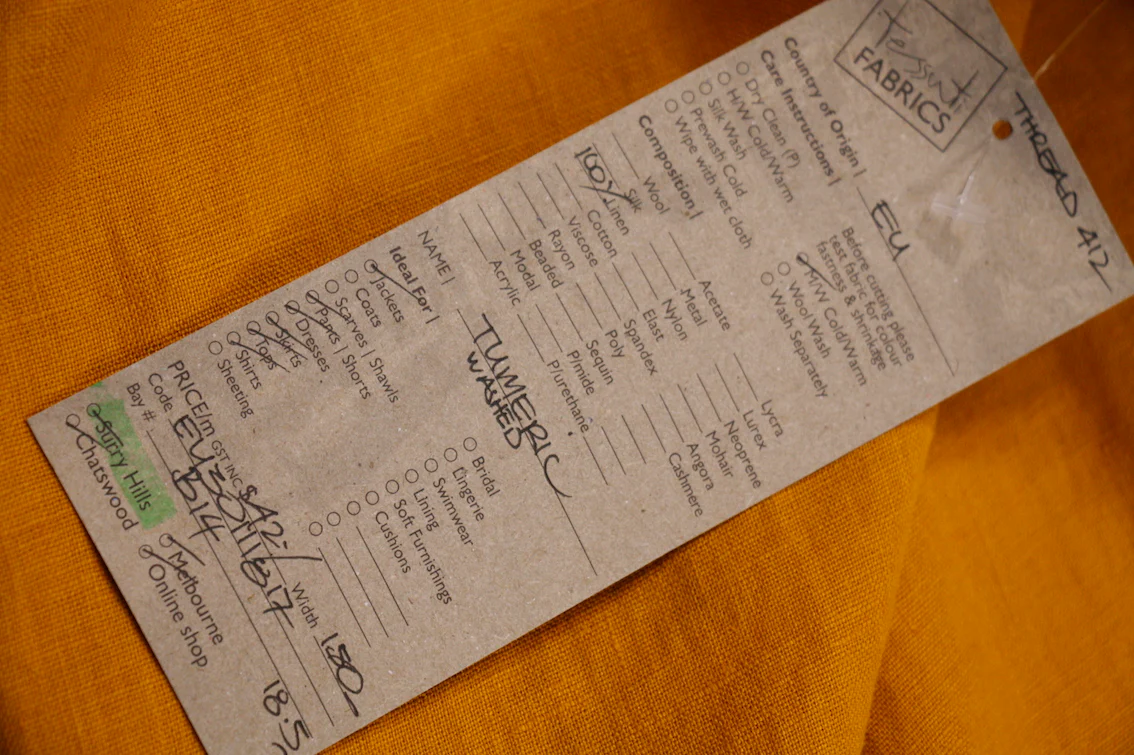 THREAD 412
Tessuti
FABRICS
Country of Origin | EU
Care Instructions | Before cutting please
test fabric for colour
fastness & shrinkage
Dry Clean (P)
H/W Cold/Warm
Silk Wash
Prewash Cold
Wipe with wet cloth
M/W Cold/Warm
Wool Wash
Wash Separately
Composition |
Wool Acetate Lycra
Silk Metal Lurex
100% Linen Nylon Neoprene
Cotton Elast Mohair
Viscose Spandex Angora
Rayon Poly Cashmere
Beaded Sequin
Modal P/mide
Acrylic P/urethane
NAME | TUMERIC
WASHED
Ideal For |
Jackets Bridal
Coats Lingerie
Scarves | Shawls Swimwear
Pants | Shorts Lining
Dresses Soft Furnishings
Skirts Cushions
Tops
Shirts
Sheeting
PRICE/m GST INC $42.- Width 1.50
Code
Bay # B14 18.5
Surry Hills Melbourne
Chatswood Online shop